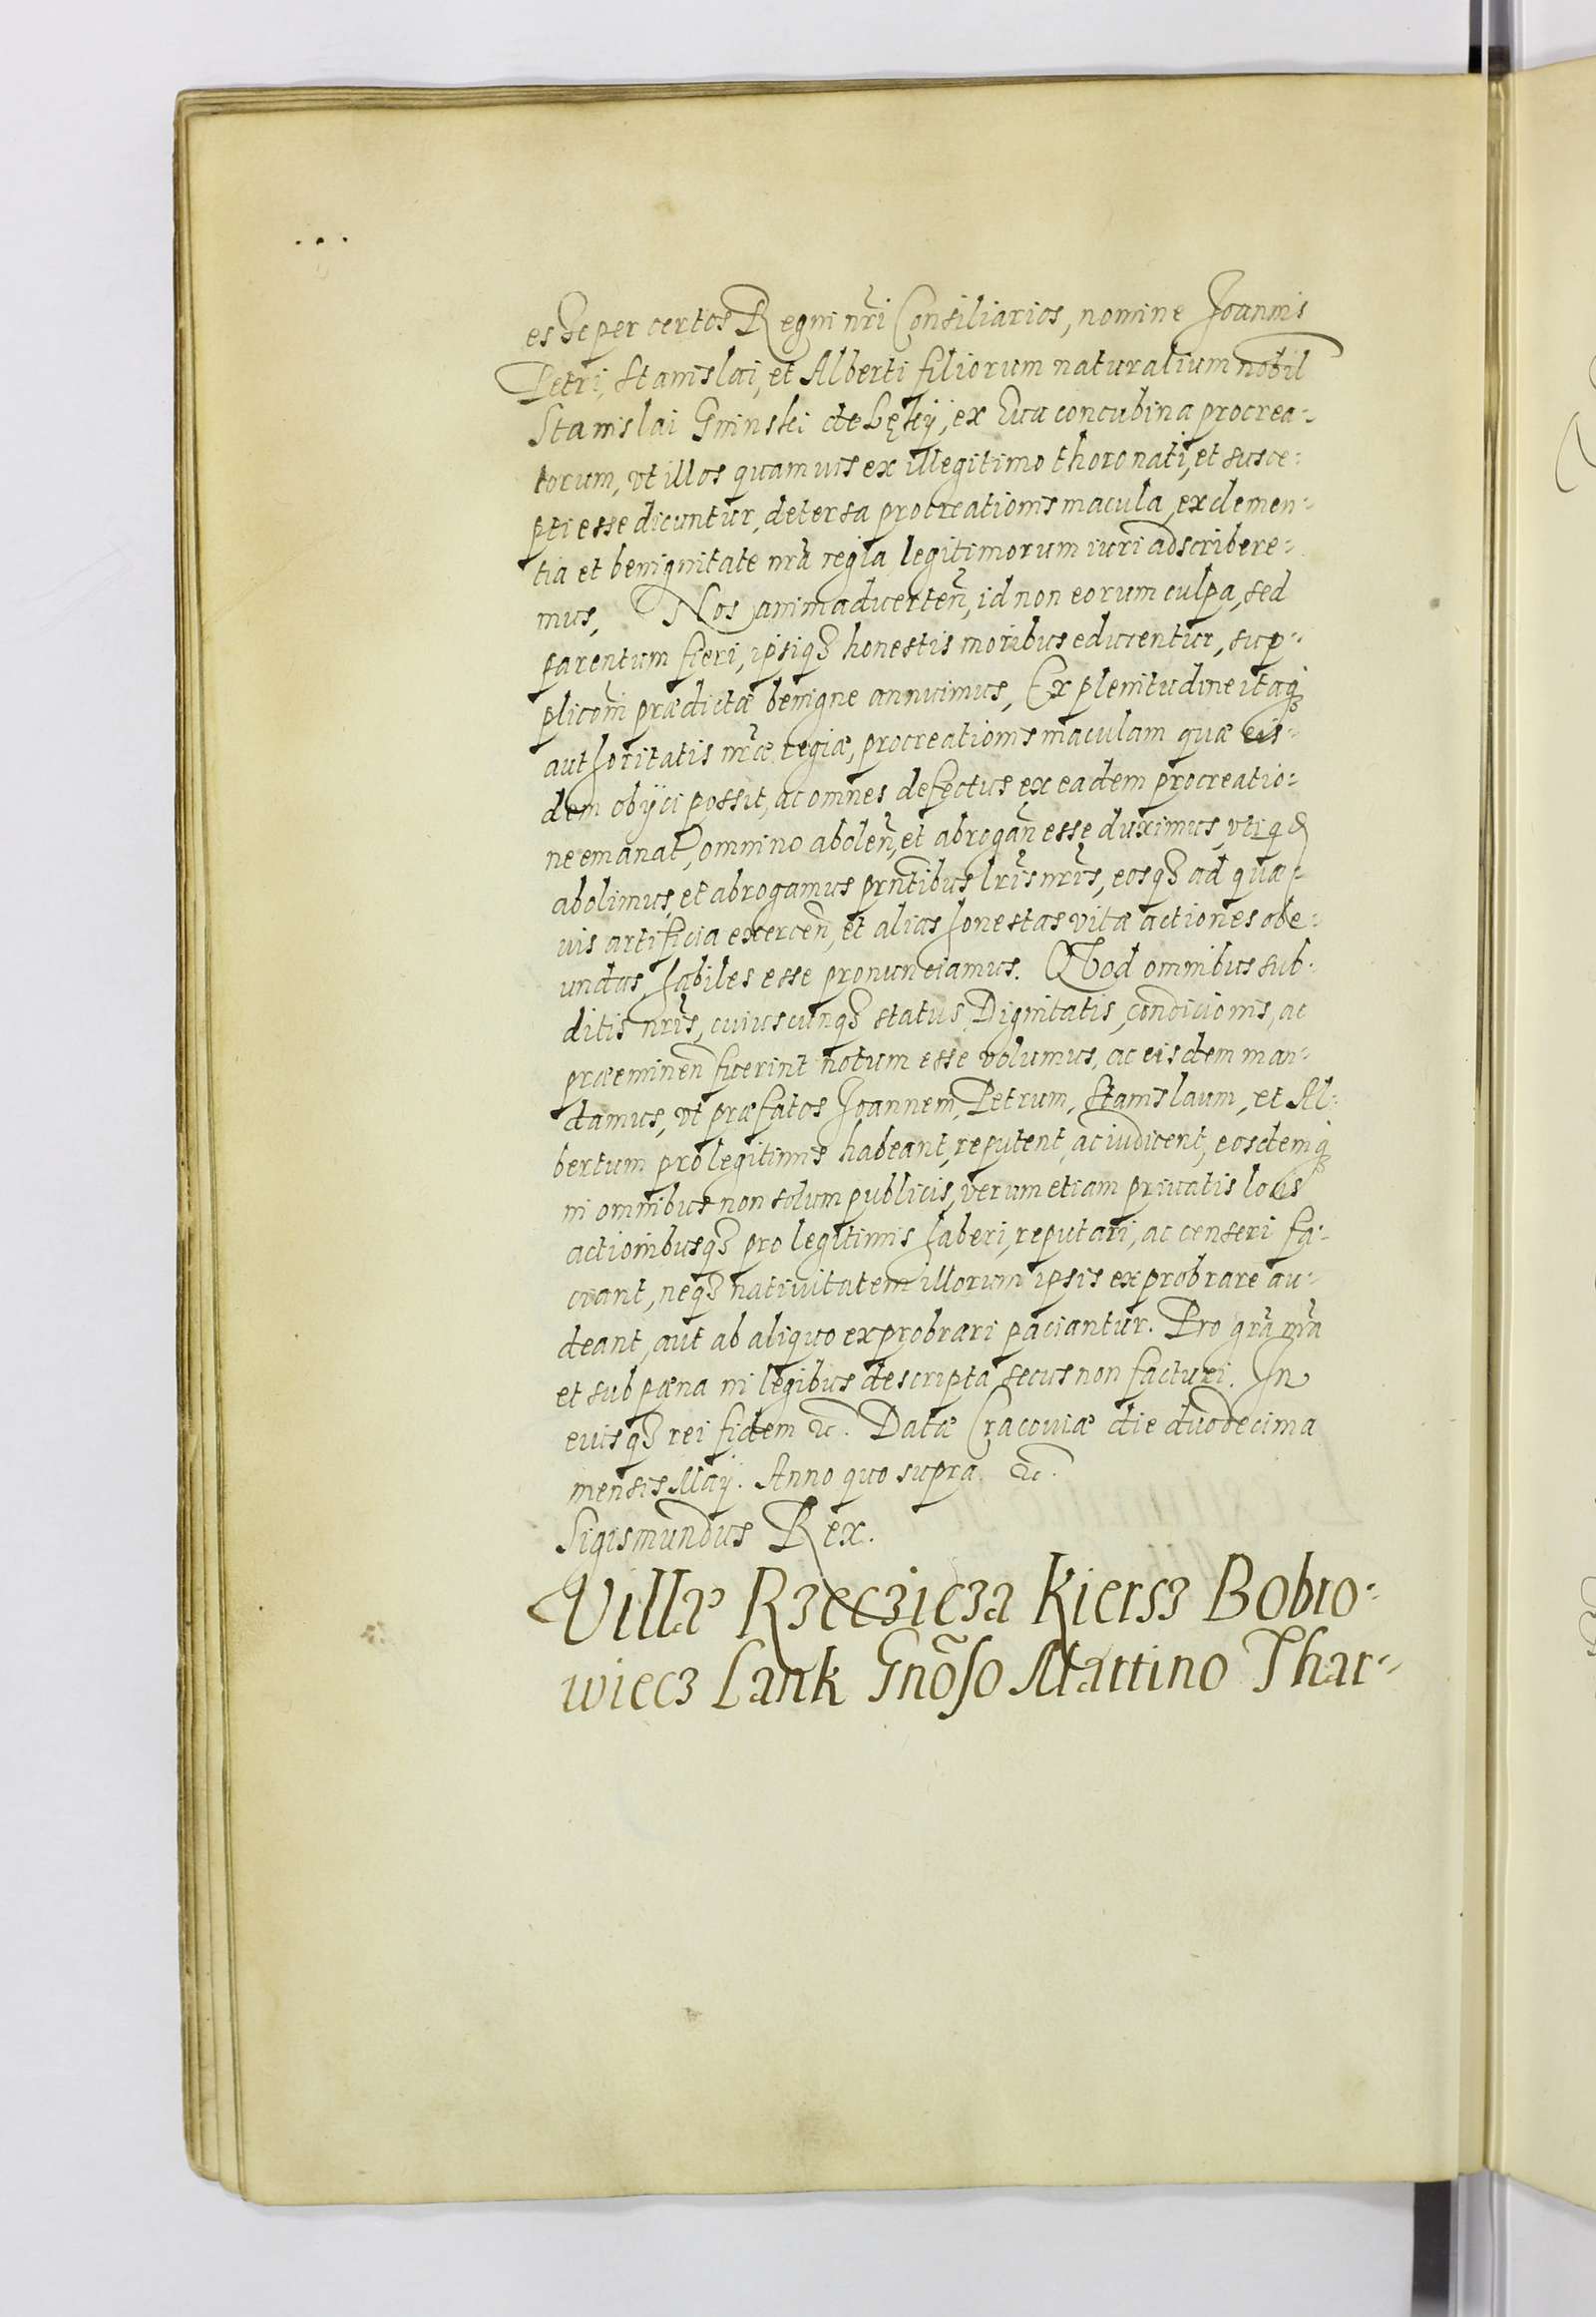 es̃t per certos Regni nr̃i Consiliarios, nomine Joannis
Petri, Stanislai, et Alberti filiorum naturalium nobil
Stanislai Gninski de Lęky, ex Eua concubina procrea-
torum, vt illos quamuis ex illegitimo thoro nati, et susce-
pti esse dicuntur, detersa procreationis macula, ex clemen-
tia et benignitate nrã regia legitimorum iuri adscribere-
mus, Nos animaduerteñ, id non eorum culpa, sed
parentum fieri, ipsiqȝ honestis moribus educentur, sup-
plicoñi prædictæ benigne annuimus, Ex plenitudine itaqȝ
authoritatis nr̃æ regiæ, procreationis maculam quæ eis-
dem obijci possit, ac omnes defectus ex eadem procreatio-
ne emanañ, omnino aboleñ, et abrogañ esse duximus, vti qđ
abolimus, et abrogamus prñtibus lr̃is nr̃is, eosqȝ ad quæ-
uis artificia exerceñ, et alias honestas vitæ actiones obe-
undas, habiles esse pronunciamus. Quod omnibus sub-
ditis nr̃is, cuiuscunqȝ status, Dignitatis, condicionis, ac
præeminen̄ fuerint notum esse volumus, ac eisdem man-
damus, vt præfatos Joannem, Petrum, Stanislaum, et Al-
bertum pro legitimis habeant, reputent, ac iudicent, eosdemqȝ
in omnibus non solum publicis, verum etiam priuatis locis
actionibusqȝ pro legitimis haberi, reputari, ac censeri fa-
ciant, neqȝ natiuitatem illorum ipsis exprobrare au-
deant, aut ab aliquo exprobrari paciantur. Pro grã nrã
et sub pœna in legibus descripta secus non facturi. In
cuisqȝ rei fidem &c. Datæ Cracouiæ die duodecima
mensis Maij. Anno quo supra. &c.
Sigismundus Rex.
Villæ Rzeczicza Kiersz Bobro-
wiecz Lank Gnõso Martino Thar-